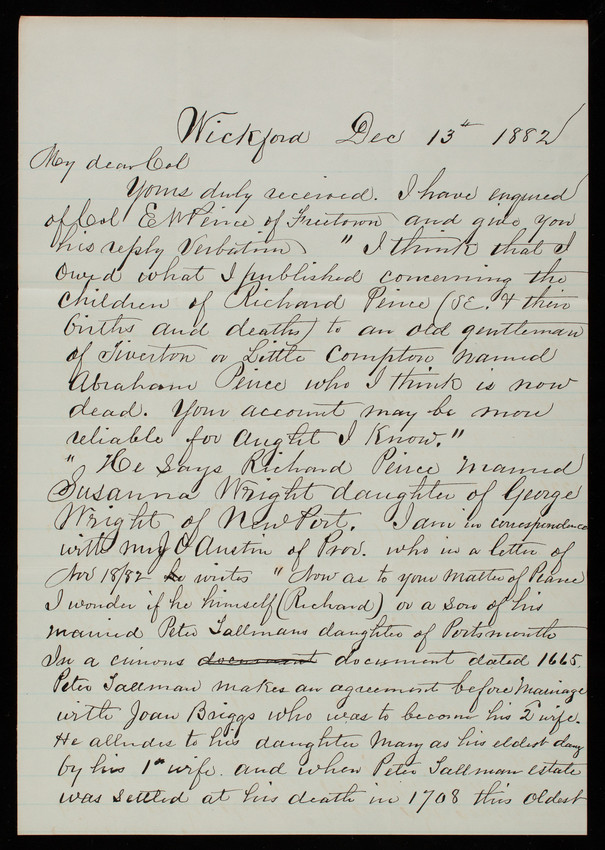 Wickford Dec 13th 1882
My dear Col
Yours duly received. I have enquired
of Col E W Peirce of Freetown and give you
his reply Verbatim " I think that I
owed what I published concerning the
children of Richard Peirce (SE. & their
births and deaths) to an old gentleman
of Tiverton or Little Compton named
Abraham Peirce who I think is now
dead. Your account may be more
reliable for aught I know."
" He says Richard Peirce married
Susanna Wright daughter of George
Wright of NewPort. I am in correspondence
with Mr J O Austin of Prov. who in a letter of
Nov 18/82 he writes " Now as to your Master of Pearce
I wonder if he himself (Richard) or a son of his
married Peter Tallmans daughter of Portsmouth
In a curious document document dated 1665.
Peter Tallman makes an agreement before Marriage
with Joan Briggs who was to become his 2d wife.
He alludes to his daughter Mary as his eldest dau
by his 1st wife. and when Peter Tallman estate
was settled at his death in 1708 this oldest